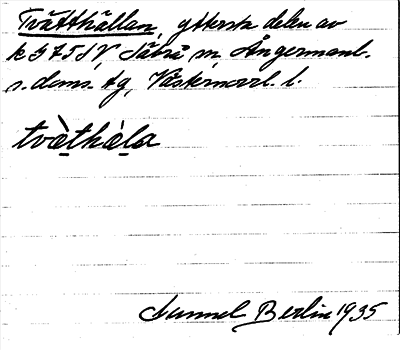 Tvätthällan, yttersta delen av
k 575 IV, Säbrå sn, Ångermanl.
s. doms. tg, Västernorrl. l.
tvæ̀thæ̀la
Sunnel Berlin 1935